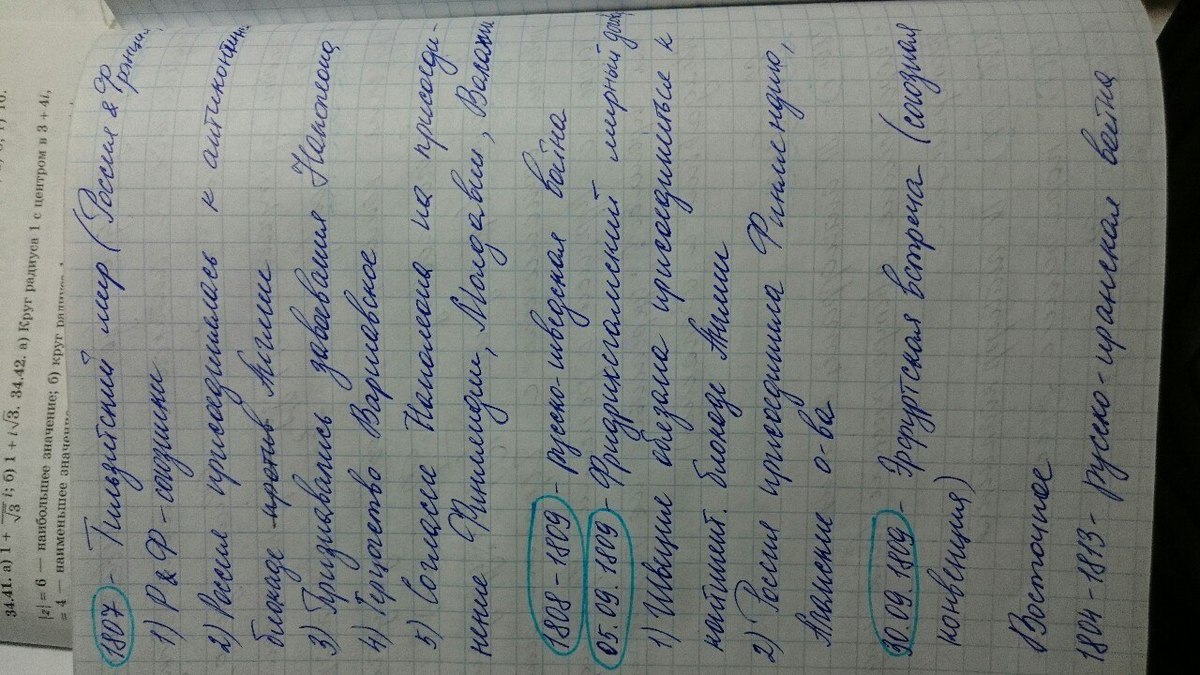 34.41. а) 1 + i/√3; б) 1 + i√3. 34.42. а) Круг радиуса 1 с центром в 3 + 4i,
|z| = 6 — наибольшее значение; б) круг радиуса 1
= 4 — наименьшее
1807 - Тильзитский мир (Россия & Франция
1) Р & Ф - союзники
2) Россия присоединилась к
блокаде против Англии
3) Признавались завоевания Наполеона
4) Герцогство Варшавское
5) Согласие Наполеона на присоеди-
нение Финляндии, Молдавии, Валахии
1808 - 1809 - русско-шведская война
05.09.1809 - Фридрихсгамский мирный
1) Швеция обязана присоединиться к
континент. блокаде Англии
2) Россия присоединила Финляндию,
о-ва
30.09.1809 - Эрфуртская встреча (союзная
конвенция)
Восточное
1804 - 1813 - русско-иранская война